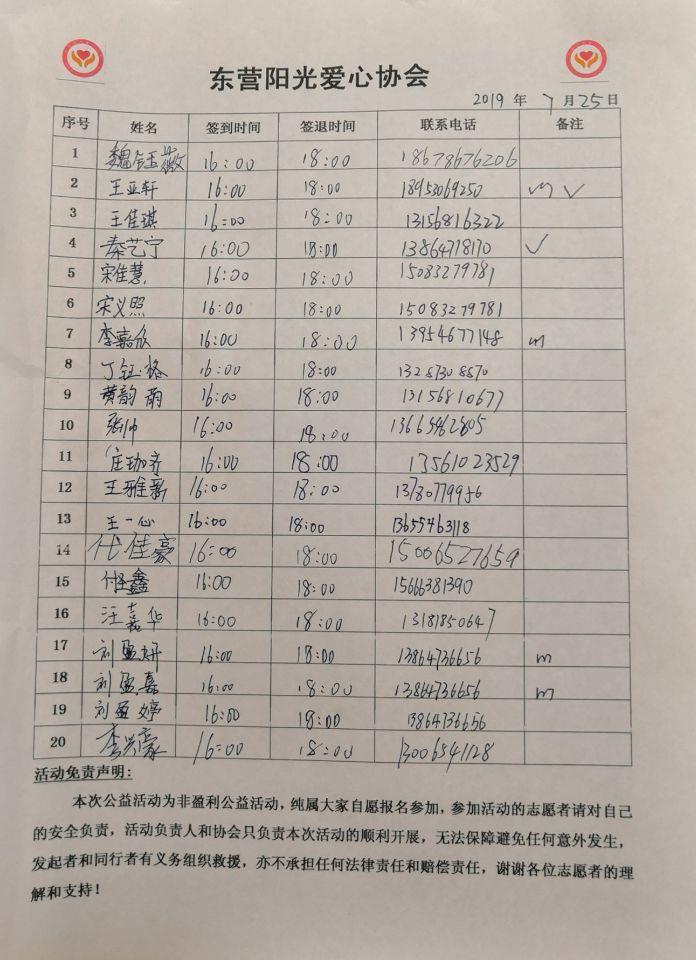 东营阳光爱心协会
2019 年 7 月 25 日
序号 姓名 签到时间 签退时间 联系电话 备注
1 魏钰薇 16:00 18:00 18678676206
2 王亚轩 16:00 18:00 18953069250 m ✓
3 王佳琪 16:00 18:00 13156816322
4 秦艺宁 16:00 18:00 13864778170 ✓
5 宋佳慧 16:00 18:00 15083279781
6 宋义照 16:00 18:00 15083279781
7 李嘉欣 16:00 18:00 13954677148 m
8 丁钰格 16:00 18:00 13287308870
9 黄韵雨 16:00 18:00 13156810677
10 张帅 16:00 18:00 13665462805
11 16:00 18:00 13561023529
12 王雅新 16:00 18:00 13780779986
13 王一心 16:00 18:00 13655463118
14 代佳豪 16:00 18:00 15006527659
15 16:00 18:00 15666381390
16 汪嘉华 16:00 18:00 13181850647
17 刘盈妍 16:00 18:00 13864736656 m
18 刘盈嘉 16:00 18:00 13864736656 m
19 刘盈婷 16:00 18:00 13864736656
20 李兴豪 16:00 18:00 13006541128
活动免责声明:
本次公益活动为非盈利公益活动，纯属大家自愿报名参加，参加活动的志愿者请对自己
的安全负责，活动负责人和协会只负责本次活动的顺利开展，无法保障避免任何意外发生，
发起者和同行者有义务组织救援，亦不承担任何法律责任和赔偿责任，谢谢各位志愿者的理
解和支持！